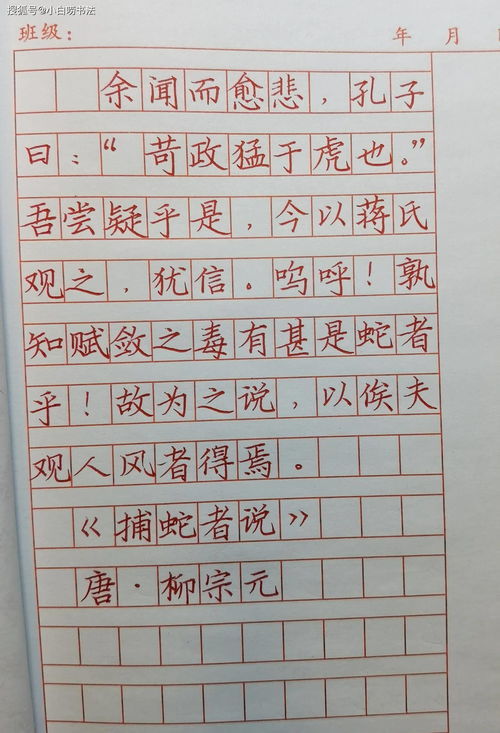 搜狐号@小白唠书法
班级：
年 月
余闻而愈悲，孔子
曰：“苛政猛于虎也。”
吾尝疑乎是，今以蒋氏
观之，犹信。呜呼！孰
知赋敛之毒有甚是蛇者
乎！故为之说，以俟夫
观人风者得焉。
《捕蛇者说》
唐·柳宗元